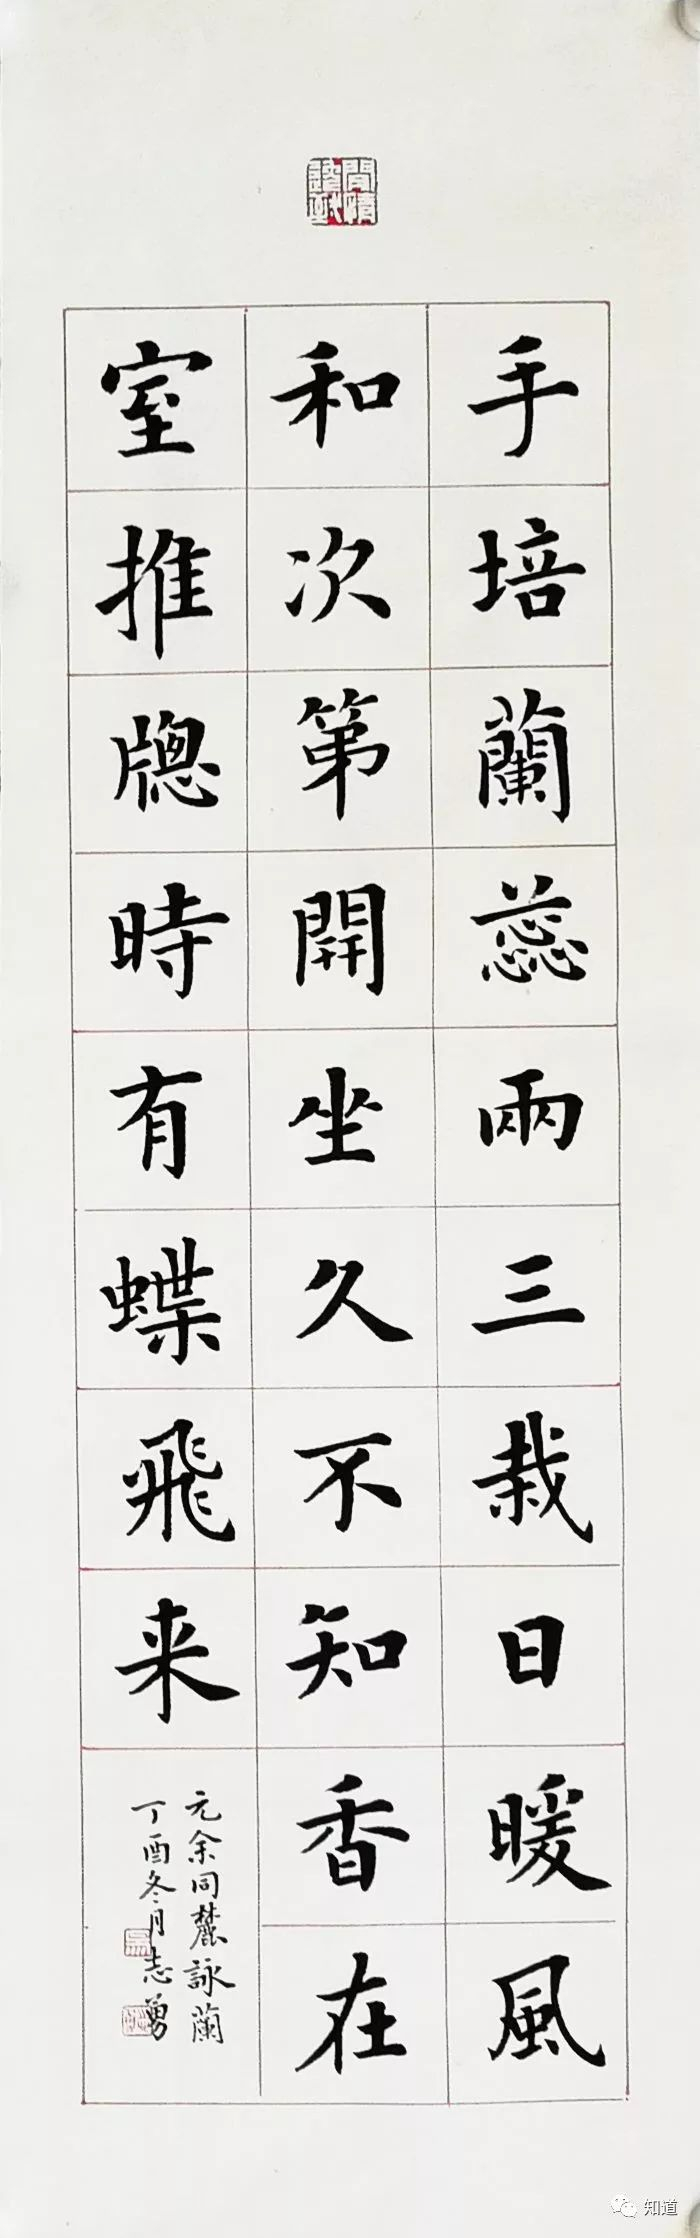 手培蘭蕊兩三栽日暖風
和次第開坐久不知香在
室推牕時有蝶飛来
元余同麓詠蘭
丁酉冬月志勇
知道